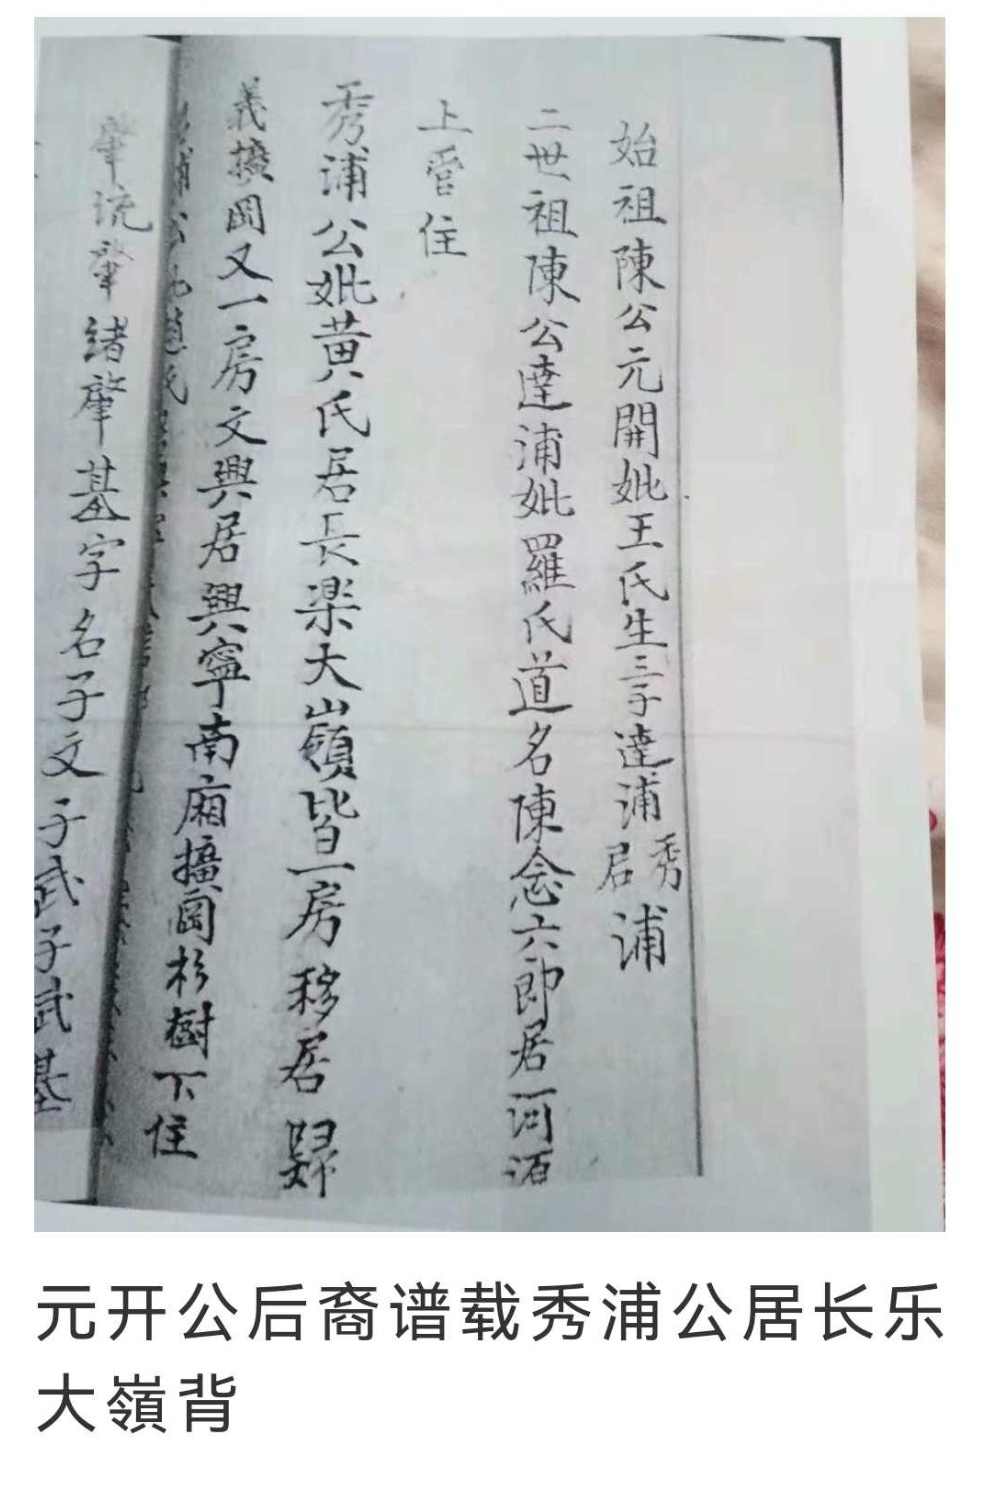 始祖陳公元開妣王氏生三子達浦秀浦居
二世祖陳公達浦妣羅氏道名陳念六郎居河源
上管住
秀浦公妣黄氏居長楽大嶺背一房移居歸
義擴岡又一房文興居興寧南廂擴岡杉樹下住
肇統肇緒肇基字名子文子武子武基
元开公后裔谱载秀浦公居长乐
大嶺背